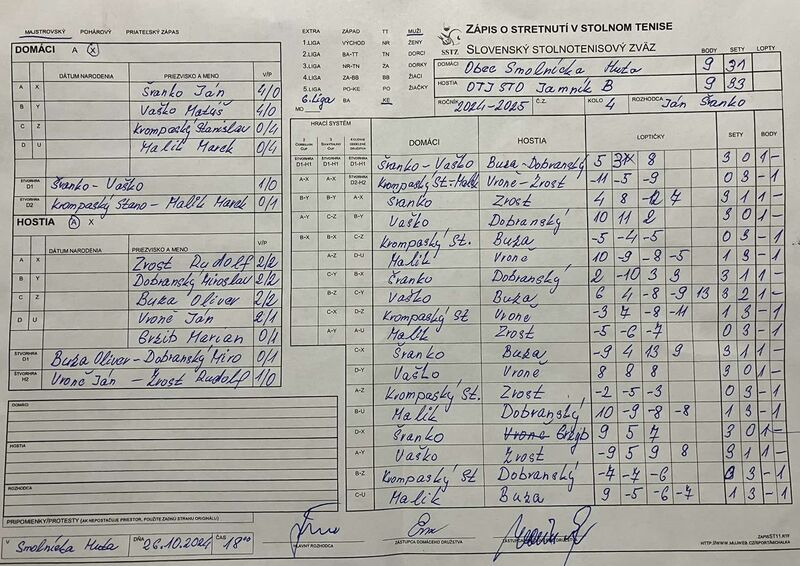 MAJSTROVSKÝ POHÁROVÝ PRIATEĽSKÝ ZÁPAS
DOMÁCI A X
DÁTUM NARODENIA PRIEZVISKO A MENO V/P
A X Švanko Ján 4/0
B Y Vaško Matúš 4/0
C Z Krompaský Stanislav 0/4
D U Malik Marek 0/4
ŠTVORHRA D1 Švanko - Vaško 1/0
ŠTVORHRA D2 Krompaský Stano - Malik Marek 0/1
HOSTIA A X
DÁTUM NARODENIA PRIEZVISKO A MENO V/P
A X Zvost Rudolf 2/2
B Y Dobranský Miroslav 2/2
C Z Buza Oliver 2/2
D U Vroně Ján 2/1
Gržib Marian 0/1
ŠTVORHRA D1 Buza Oliver - Dobranský Miro 0/1
ŠTVORHRA H2 Vroně Ján - Zvost Rudolf 1/0
DOMÁCI
HOSTIA
ROZHODCA
PRIPOMIENKY/PROTESTY (AK NEPOSTAČUJE PRIESTOR, POUŽITE ZADNÚ STRANU ORIGINÁLU)
V Smolnícka Huta DŇA 26.10.2024 ČAS 18 00
EXTRA ZÁPAD TT MUŽI
1.LIGA VÝCHOD NR ŽENY
2.LIGA BA TN DORCI
3.LIGA NR-TN ZA DORKY
4.LIGA ZA-BB BB ŽIACI
5.LIGA PO-KE PO ŽIAČKY
MO 6.liga BA KE
SSTZ
ZÁPIS O STRETNUTÍ V STOLNOM TENISE
SLOVENSKÝ STOLNOTENISOVÝ ZVÄZ BODY SETY LOPTY
DOMÁCI Obec Smolnícka Huta 9 31
HOSTIA OTJ STO Jamník B 9 33
ROČNÍK 2024-2025 Č.Z. KOLO 4 ROZHODCA Ján Švanko
HRACÍ SYSTÉM DOMÁCI HOSTIA LOPTIČKY SETY BODY
D1-H1 D1-H1 D1-H1 Švanko - Vaško Buza - Dobranský 5 8 3 0 1 -
A-X A-X D2-H2 Krompaský St. - Malik Vroně - Zvost -11 -5 -9 0 3 - 1
B-Y B-Y A-X Švanko Zvost 4 8 -12 7 3 1 1 -
A-Y C-Z B-Y Vaško Dobranský 10 11 2 3 0 1 -
B-X B-X C-Z Krompaský St. Buza -5 -4 -5 0 3 - 1
A-Z D-U Malik Vroně 10 -9 -8 -5 1 3 - 1
C-Y B-X Švanko Dobranský 2 -10 3 3 3 1 1 -
B-Z C-Y Vaško Buza 6 4 -8 -9 13 3 2 1 -
C-X D-Z Krompaský St Vroně -3 7 -8 -11 1 3 - 1
A-Y A-U Malik Zvost -5 -6 -7 0 3 - 1
C-X Švanko Buza -9 4 13 9 3 1 1 -
D-Y Vaško Vroně 8 8 8 3 0 1 -
A-Z Krompaský St. Zvost -2 -5 -3 0 3 - 1
B-U Malik Dobranský 10 -9 -8 -8 1 3 - 1
D-X Švanko Vroně Gržib 9 5 7 3 0 1 -
A-Y Vaško Zvost -9 5 9 8 3 1 1 -
B-Z Krompaský St Dobranský -7 -7 -6 0 3 - 1
C-U Malik Buza 9 -5 -6 -7 1 3 - 1
HLAVNÝ ROZHODCA ZÁSTUPCA DOMÁCEHO DRUŽSTVA
ZAPISST11.RTF
HTTP://WWW.MUJWEB.CZ/SPORT/MICHALKA